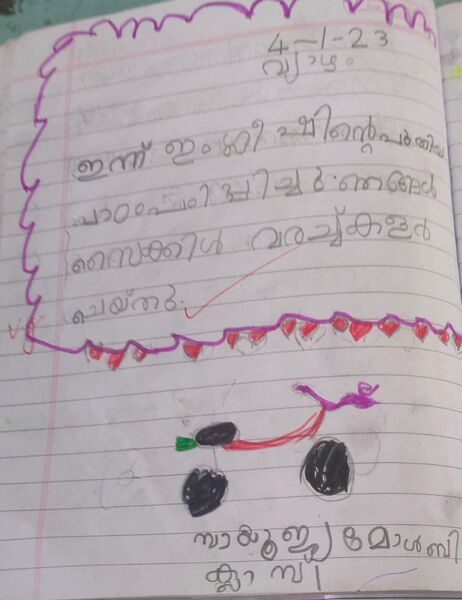 4-1-23
വ്യാഴം
ഇന്ന് ഇംഗ്ലീഷിന്റെ പുതിയ
പാഠം പഠിപ്പിച്ചു. ഞങ്ങൾ
സൈക്കിൾ വരച്ച് കളർ
ചെയ്തു.
സായൂജ്യമോൾ ബി
ക്ലാസ് 1